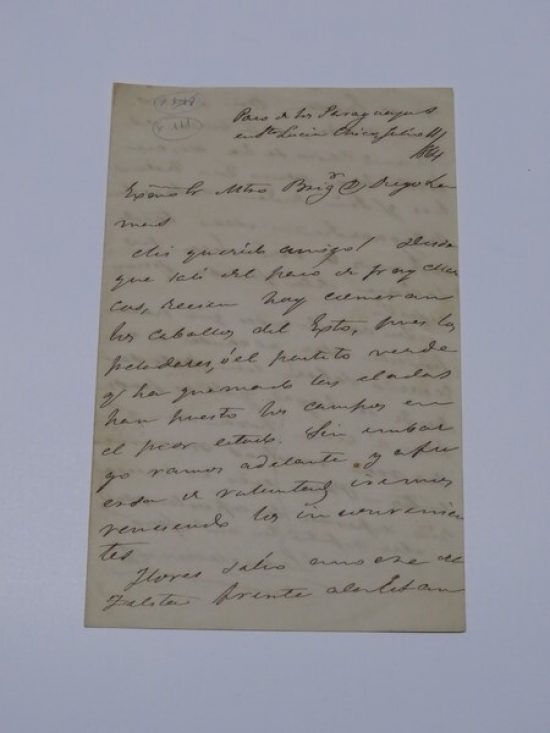 Paso de los Paraguayos
en Sta Lucia Chico Julio 11/
1864
Exmo Sr Mtro Brigr D Diego La
mas
Mis querido amigo! Desde
que salí del paso de fray
cas, recien hoy comeran
los caballos del Exto, pues los
peladares, ó el pastito verde
q ha quemado las eladas
han puesto los campos en
el peor estado. Sin embar
go vamos adelante y a fu
erza de voluntad iremos
venciendo los inconvenien
tes
Flores salio anoche de
frente a la Estan